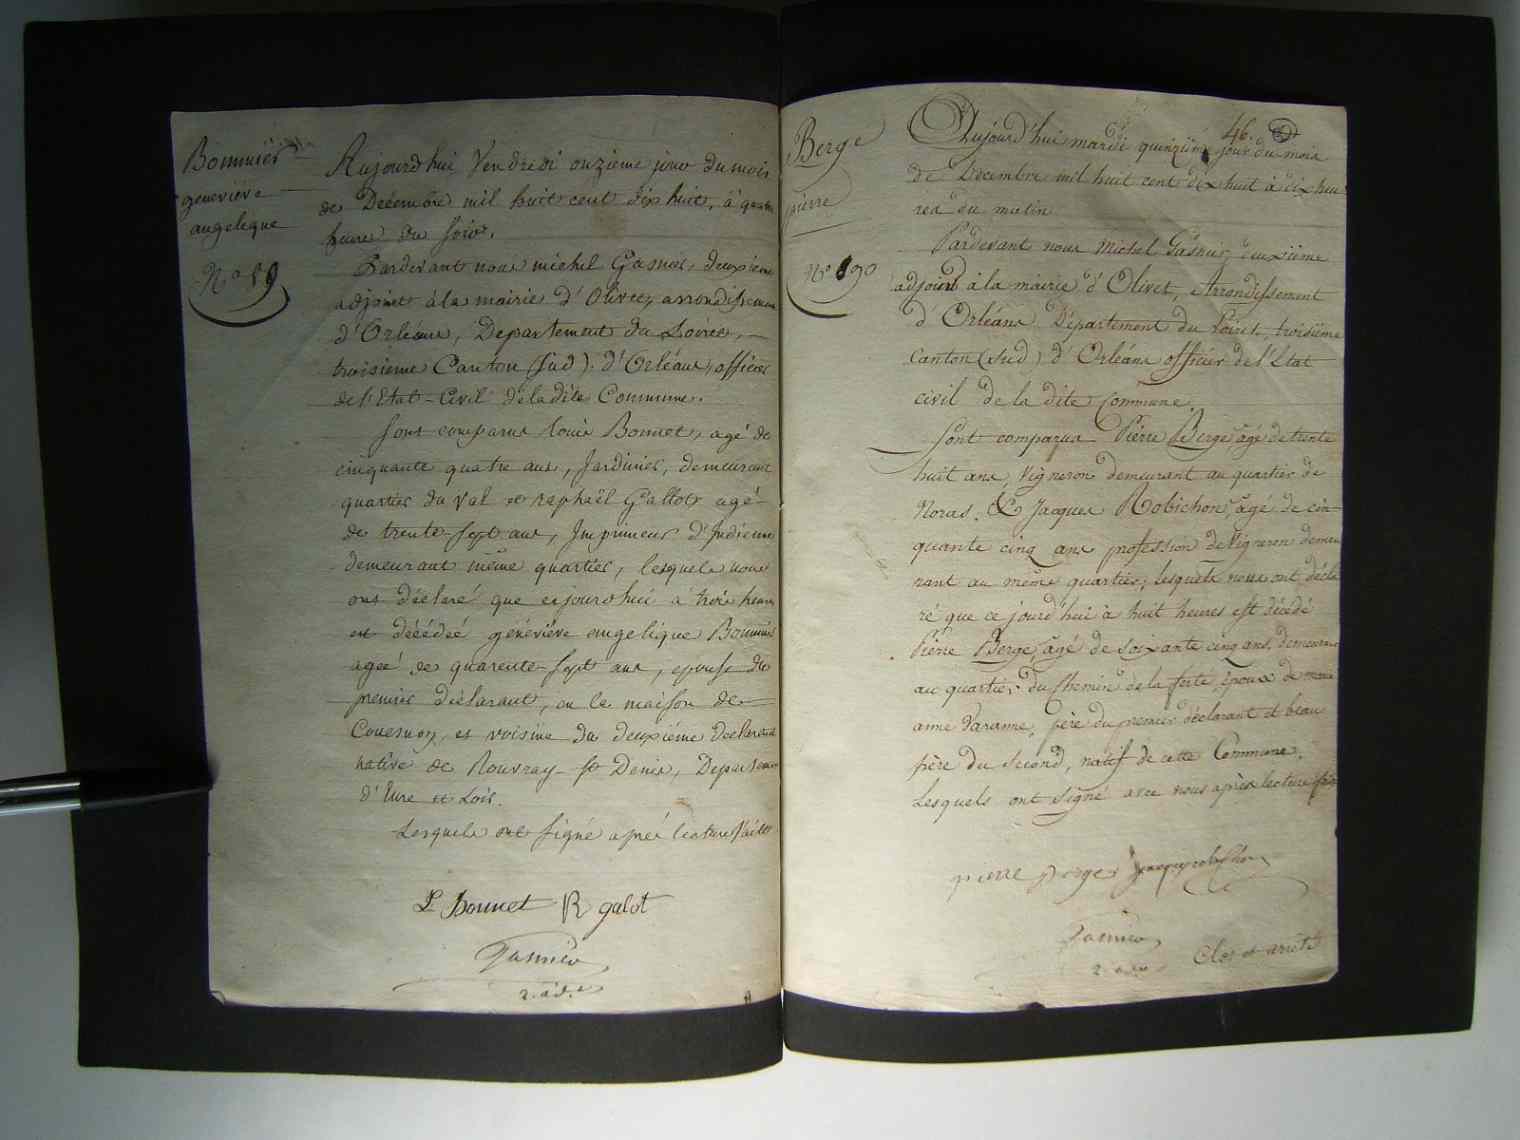 Bonnuier
geneviève
angelique
N° 89
Aujourd'hui Vendredi onzieme jour du mois
de Décembre mil huit cent dix huit, à quatre
heure du soir.
Pardevant nous michel Gasnier, deuxième
adjoint à la mairie d'Olivet, arrondissement
d'Orléans, Departement du Loiret,
troisieme Canton (Sud) d'Orléans, officier
de l'Etat-Civil de la dite Commune.
Sont comparus Louis Bonnet, agé de
cinquante quatre ans, Jardinier, demeurant
quartier du Val et raphaël Gallot agé
de trente-sept ans, Imprimeur d'Indienne
demeurant même quartier, lesquels nous
ont déclaré que cejourdhui à trois heures
est décédeé geneviève angelique
ageé de quarente-sept ans, epouse du
premier déclarant, en la maison de
et voisine du deuxième declarant
native de Rouvray-St Denis, Departement
d'Eure et Loir.
Lesquels ont signé après lecture faite
L Bonnet R galot
Gasnier
2. adt
46.
Berge
pierre
N° 90
Aujourd'hui mardi quinzième jour du mois
de Decembre mil huit cent dix huit à dix heu
res du matin
Pardevant nous Michel Gasnier, deuxième
adjoint à la mairie d'Olivet, Arrondissement
d'Orléans Département du Loiret, troisième
Canton (Sud) d'Orléans officier de l'Etat
civil de la dite Commune.
Sont comparus Pierre Berge, agé de trente
huit ans, Vigneron demeurant au quartier de
Noras, & Jacques Robichon, agé de cin-
quante cinq ans profession de Vigneron demeu
rant au même quartier; lesquels nous ont décla
ré que ce jourd'hui à huit heures est décédé
Pierre Berge, agé de soixante cinq ans, demeurant
au quartier du Chemin de la ferté époux de marie
anne Daranne, père du premier déclarant et beau
père du second, natif de cette Commune.
Lesquels ont signé avec nous après lecture faite
pierre berge Jacque robichon
Gasnier
2. adt
Clos et arrêté